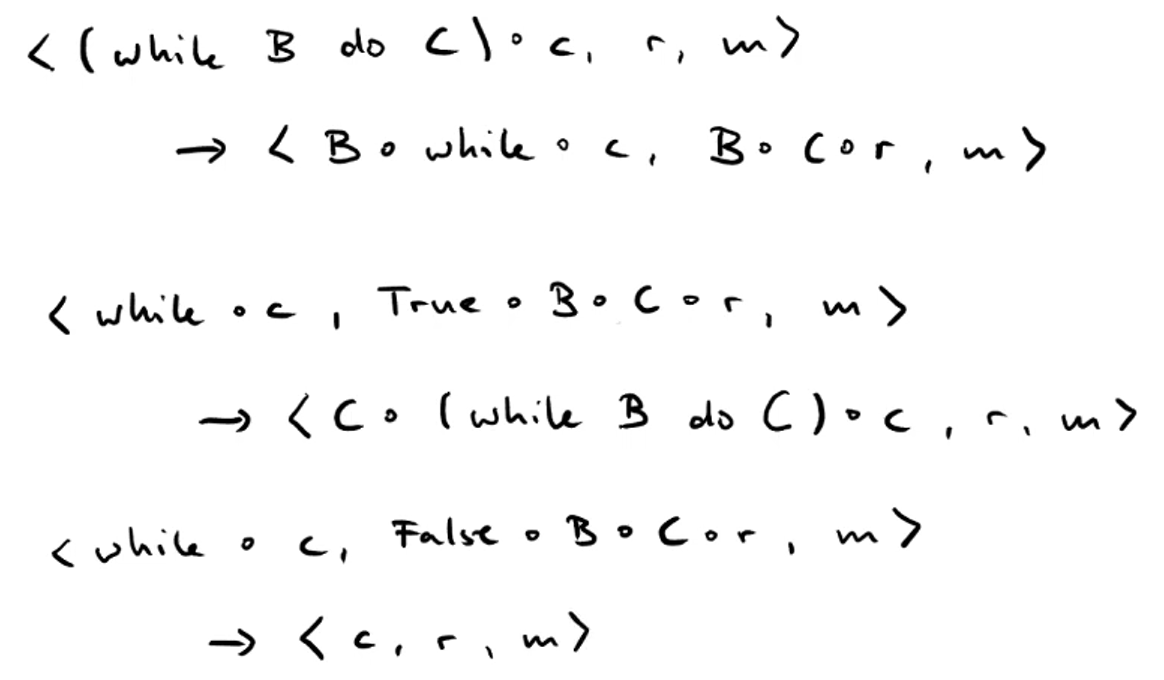 < (while B do C) ∘ c, r, m>
→ < B ∘ while ∘ c, B ∘ C ∘ r, m>
< while ∘ c, True ∘ B ∘ C ∘ r, m>
→ < C ∘ (while B do C) ∘ c, r, m>
< while ∘ c, False ∘ B ∘ C ∘ r, m>
→ < c, r, m>